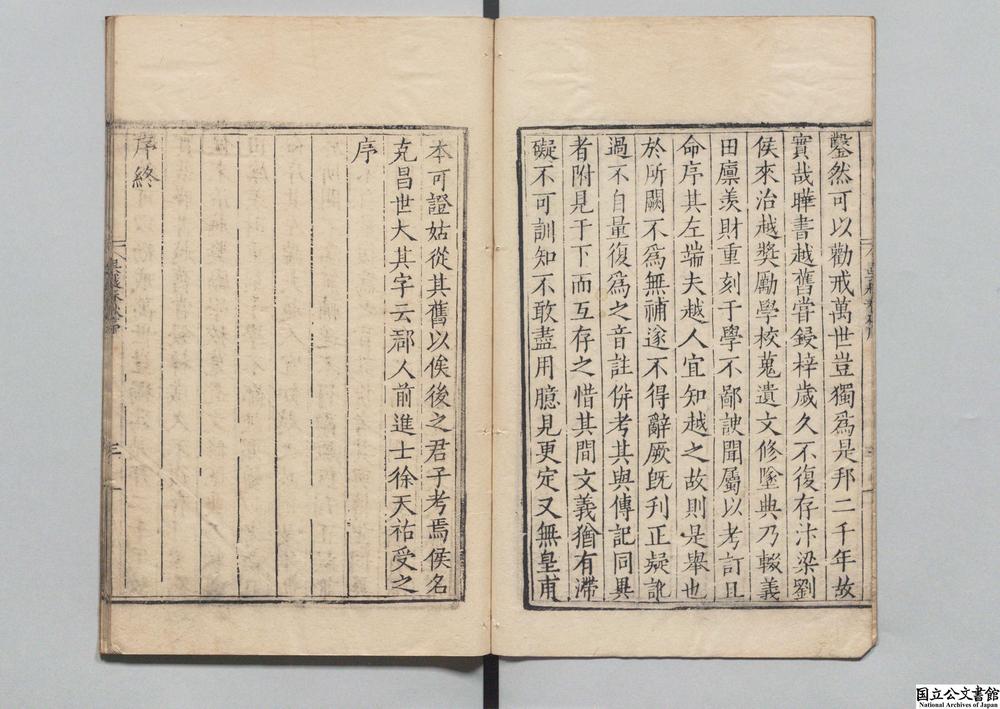 鑿然可以勸戒萬世豈獨爲是邦二千年故
實哉曄書越舊嘗鋟梓歲久不復存汴梁劉
侯來治越奬勵學校蒐遺文修墜典乃輟義
田廪羨財重刻于學不鄙謏聞屬以考訂且
命序其左端夫越人宜知越之故則是舉也
於所闕不爲無補遂不得辭厥既刋正疑訛
過不自量復爲之音註倂考其與傳記同異
者附見于下而互存之惜其間文義猶有滯
礙不可訓知不敢盡用臆見更定又無皇甫
本可證姑從其舊以俟後之君子考焉侯名
克昌世大其字云郡人前進士徐天祐受之
序
序終
三
国立公文書館
National Archives of Japan